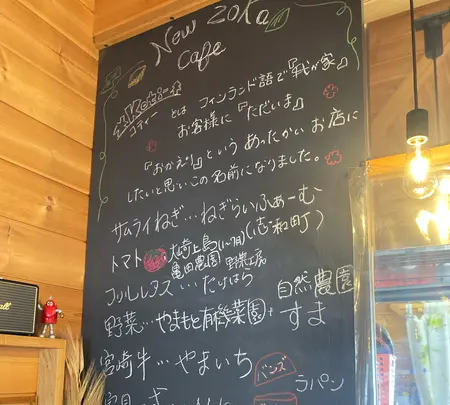 New ZOKA
Cafe
Kotiit
コティー とは フィンランド語で『我が家』
お客様に『ただいま』
『おかえり』という あったかい お店に
したいと思いこの名前になりました。
サムライねぎ…ねぎらいふぁーむ
トマト 大崎上島 (志和町)
亀田農園 野菜工房
フリルレタス…たけはら
野菜…やまもと有機菜園+ 自然農園
すま
宮崎牛…やまいち
バンズ ラパン